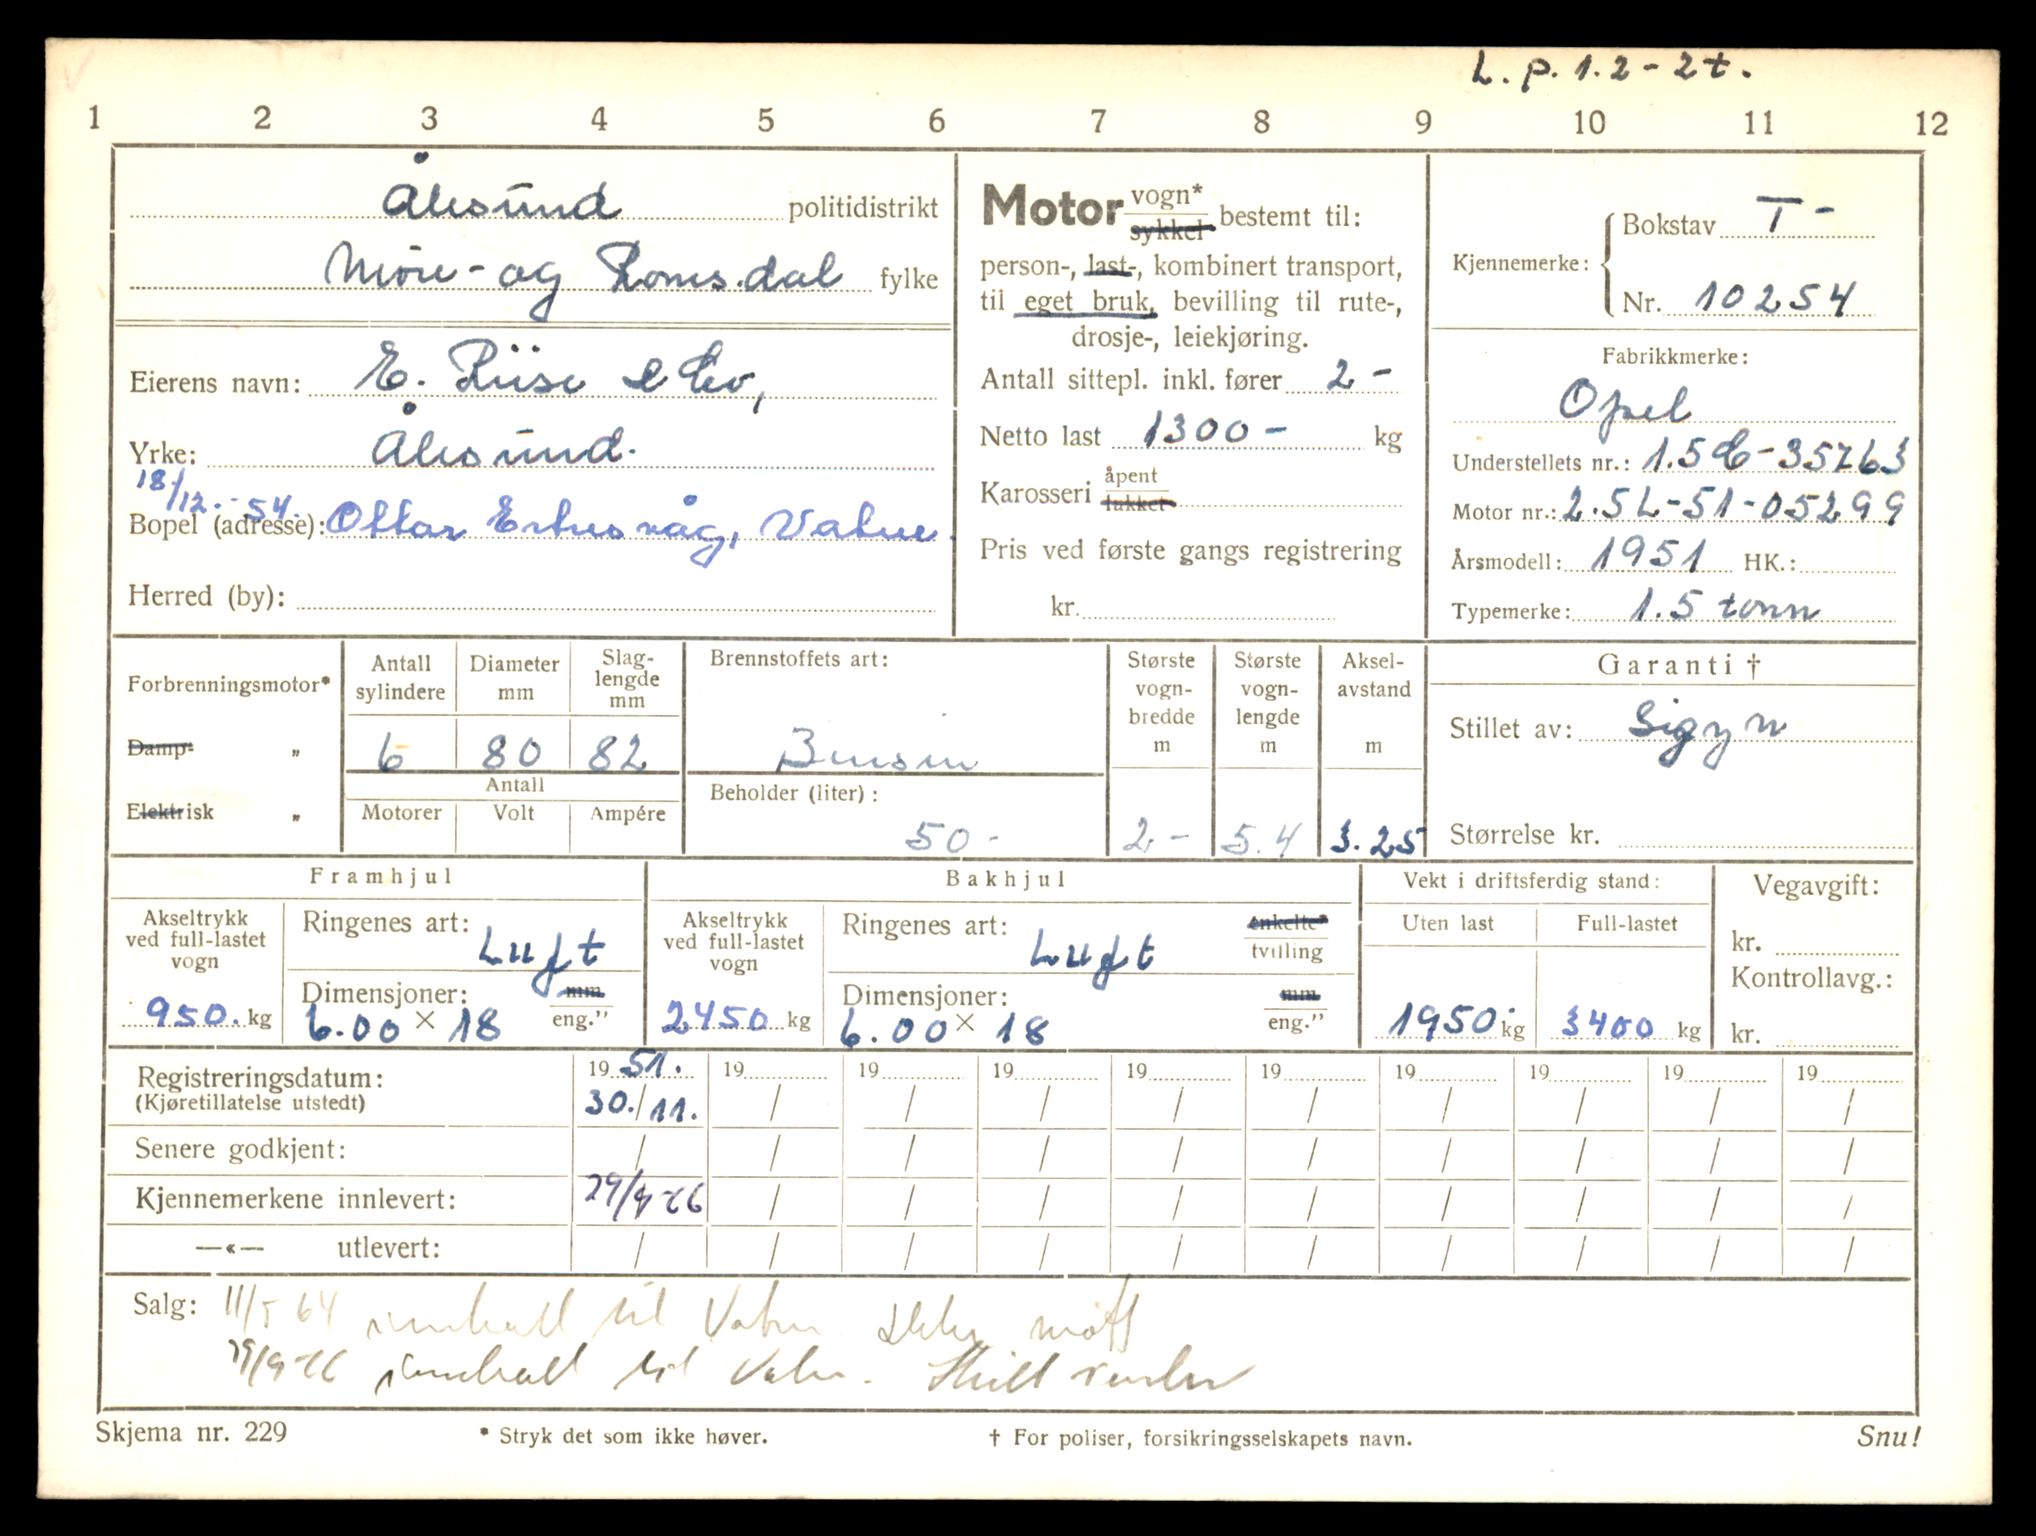 L. p. 1.2 - 2t.
1 2 3 4 5 6 7 8 9 10 11 12
Ålesund politidistrikt
Møre- og Romsdal fylke
Eierens navn: E. Riise & Co,
Yrke: Ålesund.
18/12.-54.
Bopel (adresse): Ottar Vatne.
Herred (by):
Motor vogn* sykkel bestemt til:
person-, last-, kombinert transport,
til eget bruk, bevilling til rute-,
drosje-, leiekjøring.
Antall sittepl. inkl. fører 2 -
Netto last 1300 - kg
Karosseri åpent lukket
Pris ved første gangs registrering
kr.
Kjennemerke: Bokstav T -
Nr. 10254
Fabrikkmerke:
Opel
Understellets nr.: 35763
Motor nr.: 2.5L-51-05299
Årsmodell: 1951 HK.:
Typemerke: 1.5 tonn
Forbrenningsmotor*
Damp- "
Elektrisk "
Antall sylindere
Diameter mm
Slag-lengde mm
6 80 82
Antall
Motorer Volt Ampére
Brennstoffets art:
Bensin
Beholder (liter):
50 -
Største vogn-bredde m
2 -
Største vogn-lengde m
5.4
Aksel-avstand m
3.25
Garanti †
Stillet av: Sigyn
Størrelse kr.
Framhjul
Akseltrykk ved full-lastet vogn
950. kg
Ringenes art: Luft
Dimensjoner: mm eng."
6.00 × 18
Bakhjul
Akseltrykk ved full-lastet vogn
2450 kg
Ringenes art: Luft enkelte* tvilling
Dimensjoner: mm eng."
6.00 × 18
Vekt i driftsferdig stand:
Uten last Full-lastet
1950 kg 3400 kg
Vegavgift:
kr.
Kontrollavg.:
kr.
Registreringsdatum: 19 51. 19 19 19 19 19 19 19 19 19
(Kjøretillatelse utstedt) 30./11. / / / / / / / / /
Senere godkjent: / / / / / / / / / /
Kjennemerkene innlevert: 29/9-66 / / / / / / / / /
—«— utlevert: / / / / / / / / / /
Salg: 11/5 64 innkalt til Vatne Ikke møtt
29/9-66 innkalt til Vatne. Skilt
Skjema nr. 229
* Stryk det som ikke høver.
† For poliser, forsikringsselskapets navn.
Snu!